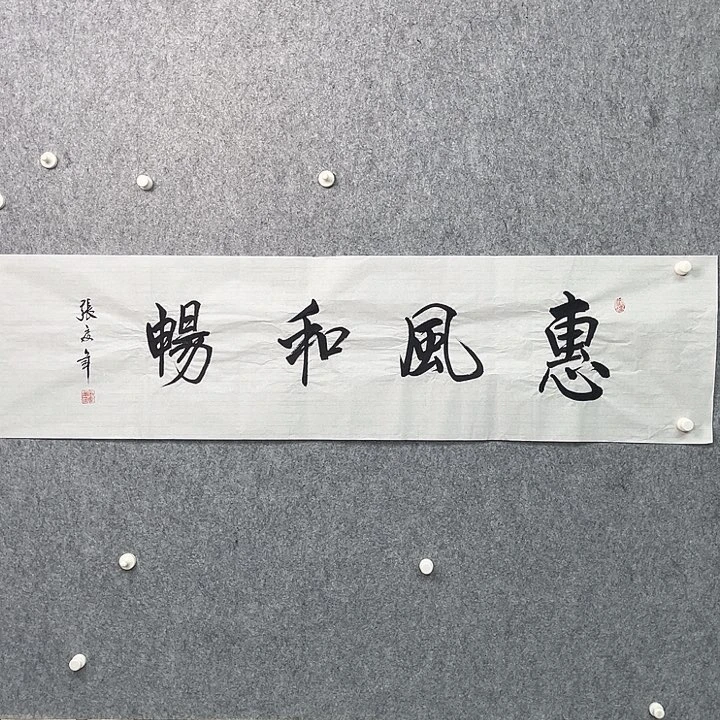 惠風和暢
張友年